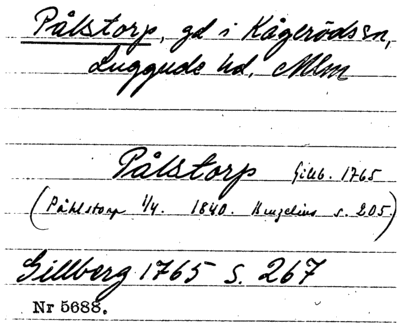 Pålstorp, gd i Kågerödssn,
Luggude hd, Mlm
Pålstorp Gillb. 1765
(Påhlstorp 1/4. 1840. Bengelius s. 205.)
Gillberg 1765 s. 267
Nr 5688.